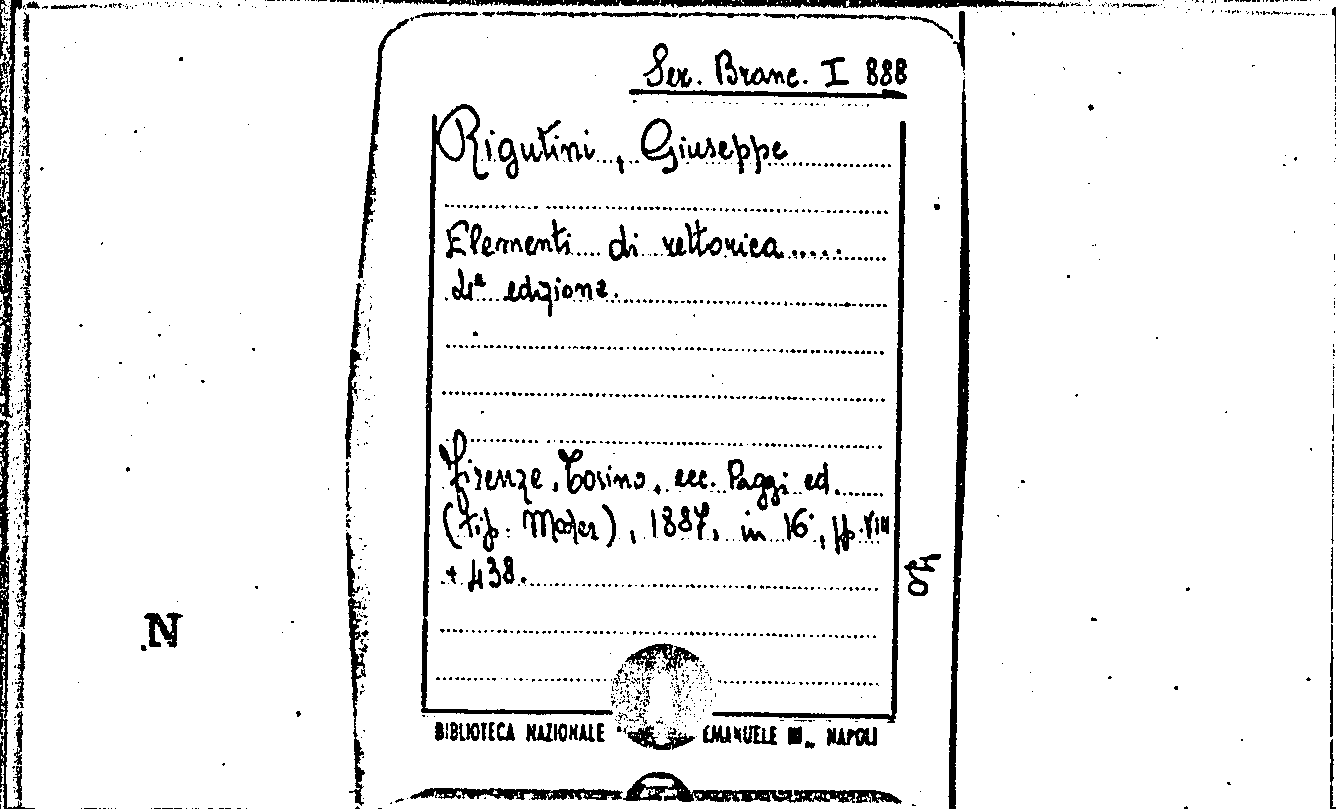 Ser. Branc. I 888
Rigutini, Giuseppe
Elementi di rettorica.....
4ª edizione.
Firenze, Torino, ecc. Paggi ed.
(tip. Moder), 1887, in 16°, pp. VIII
+ 438.
40
N.
BIBLIOTECA NAZIONALE " EMANUELE III„ NAPOLI